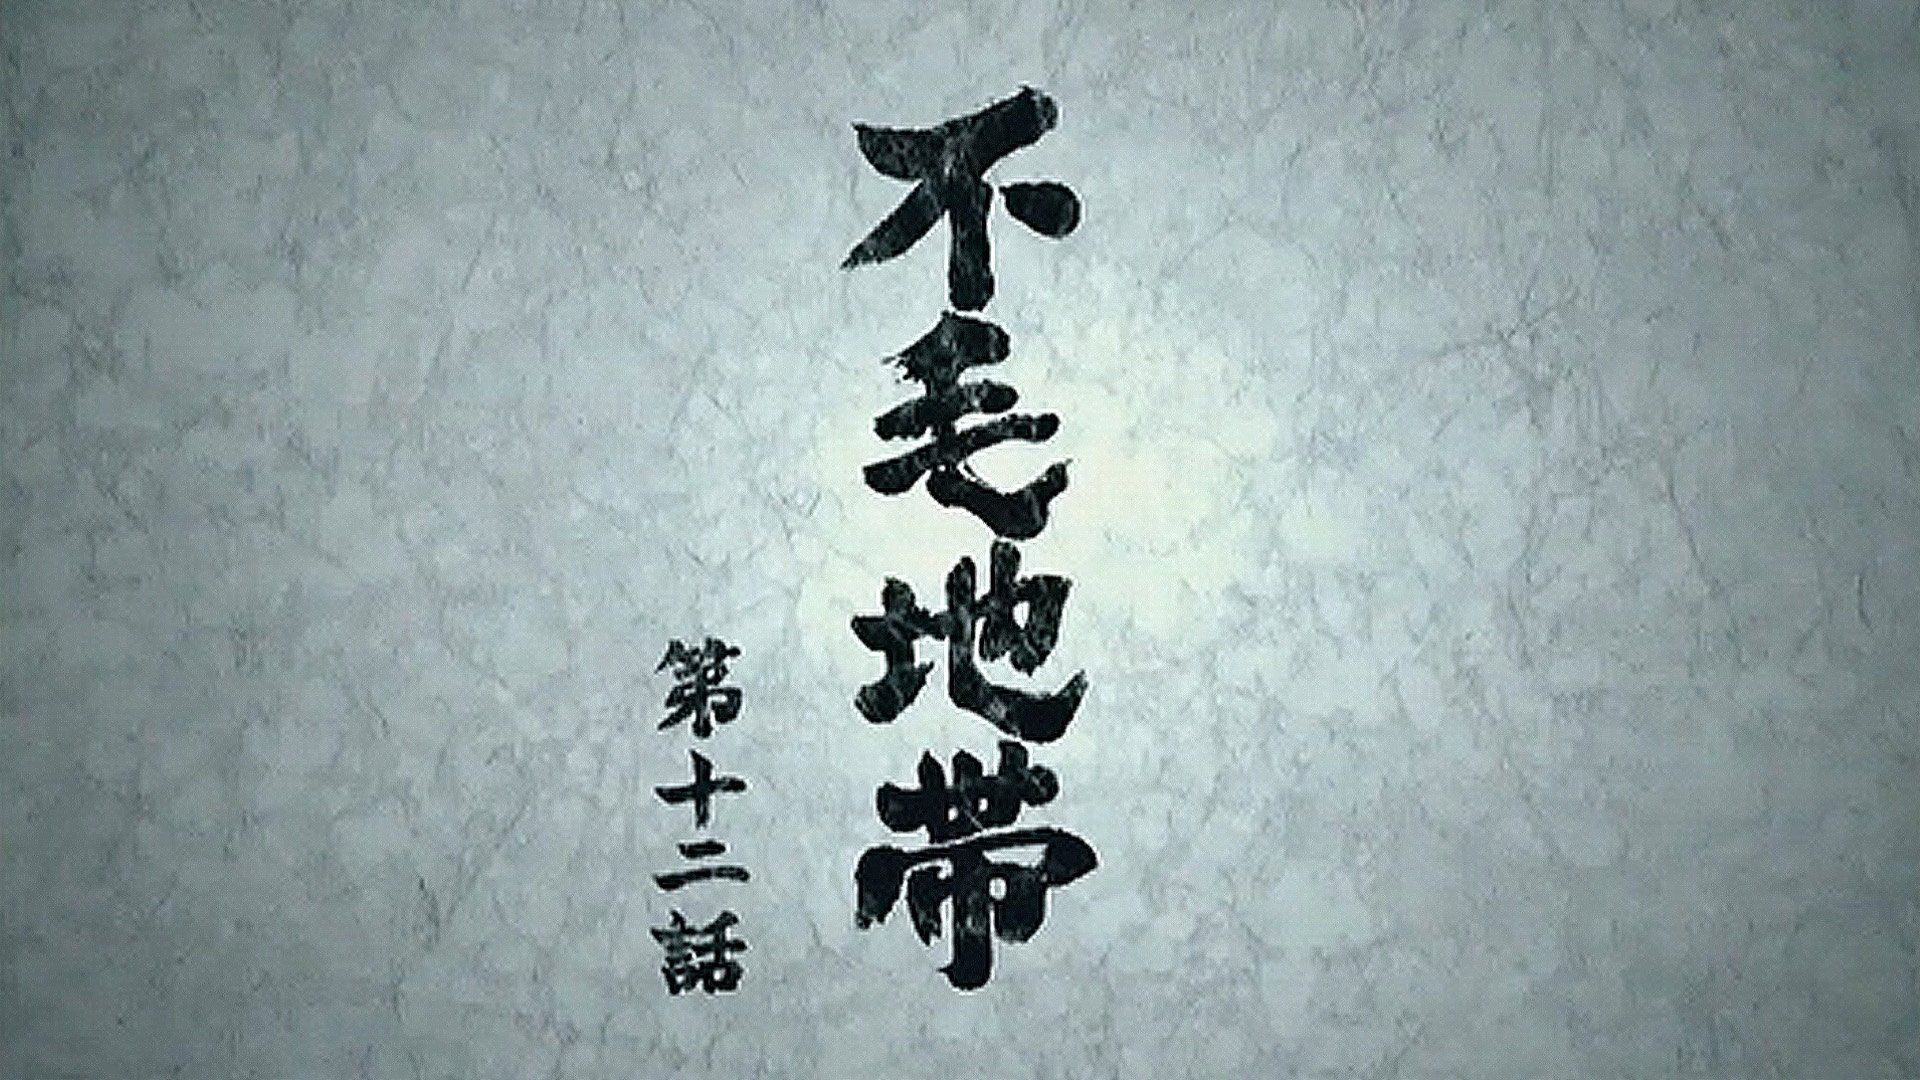 不毛地帯
第十二話